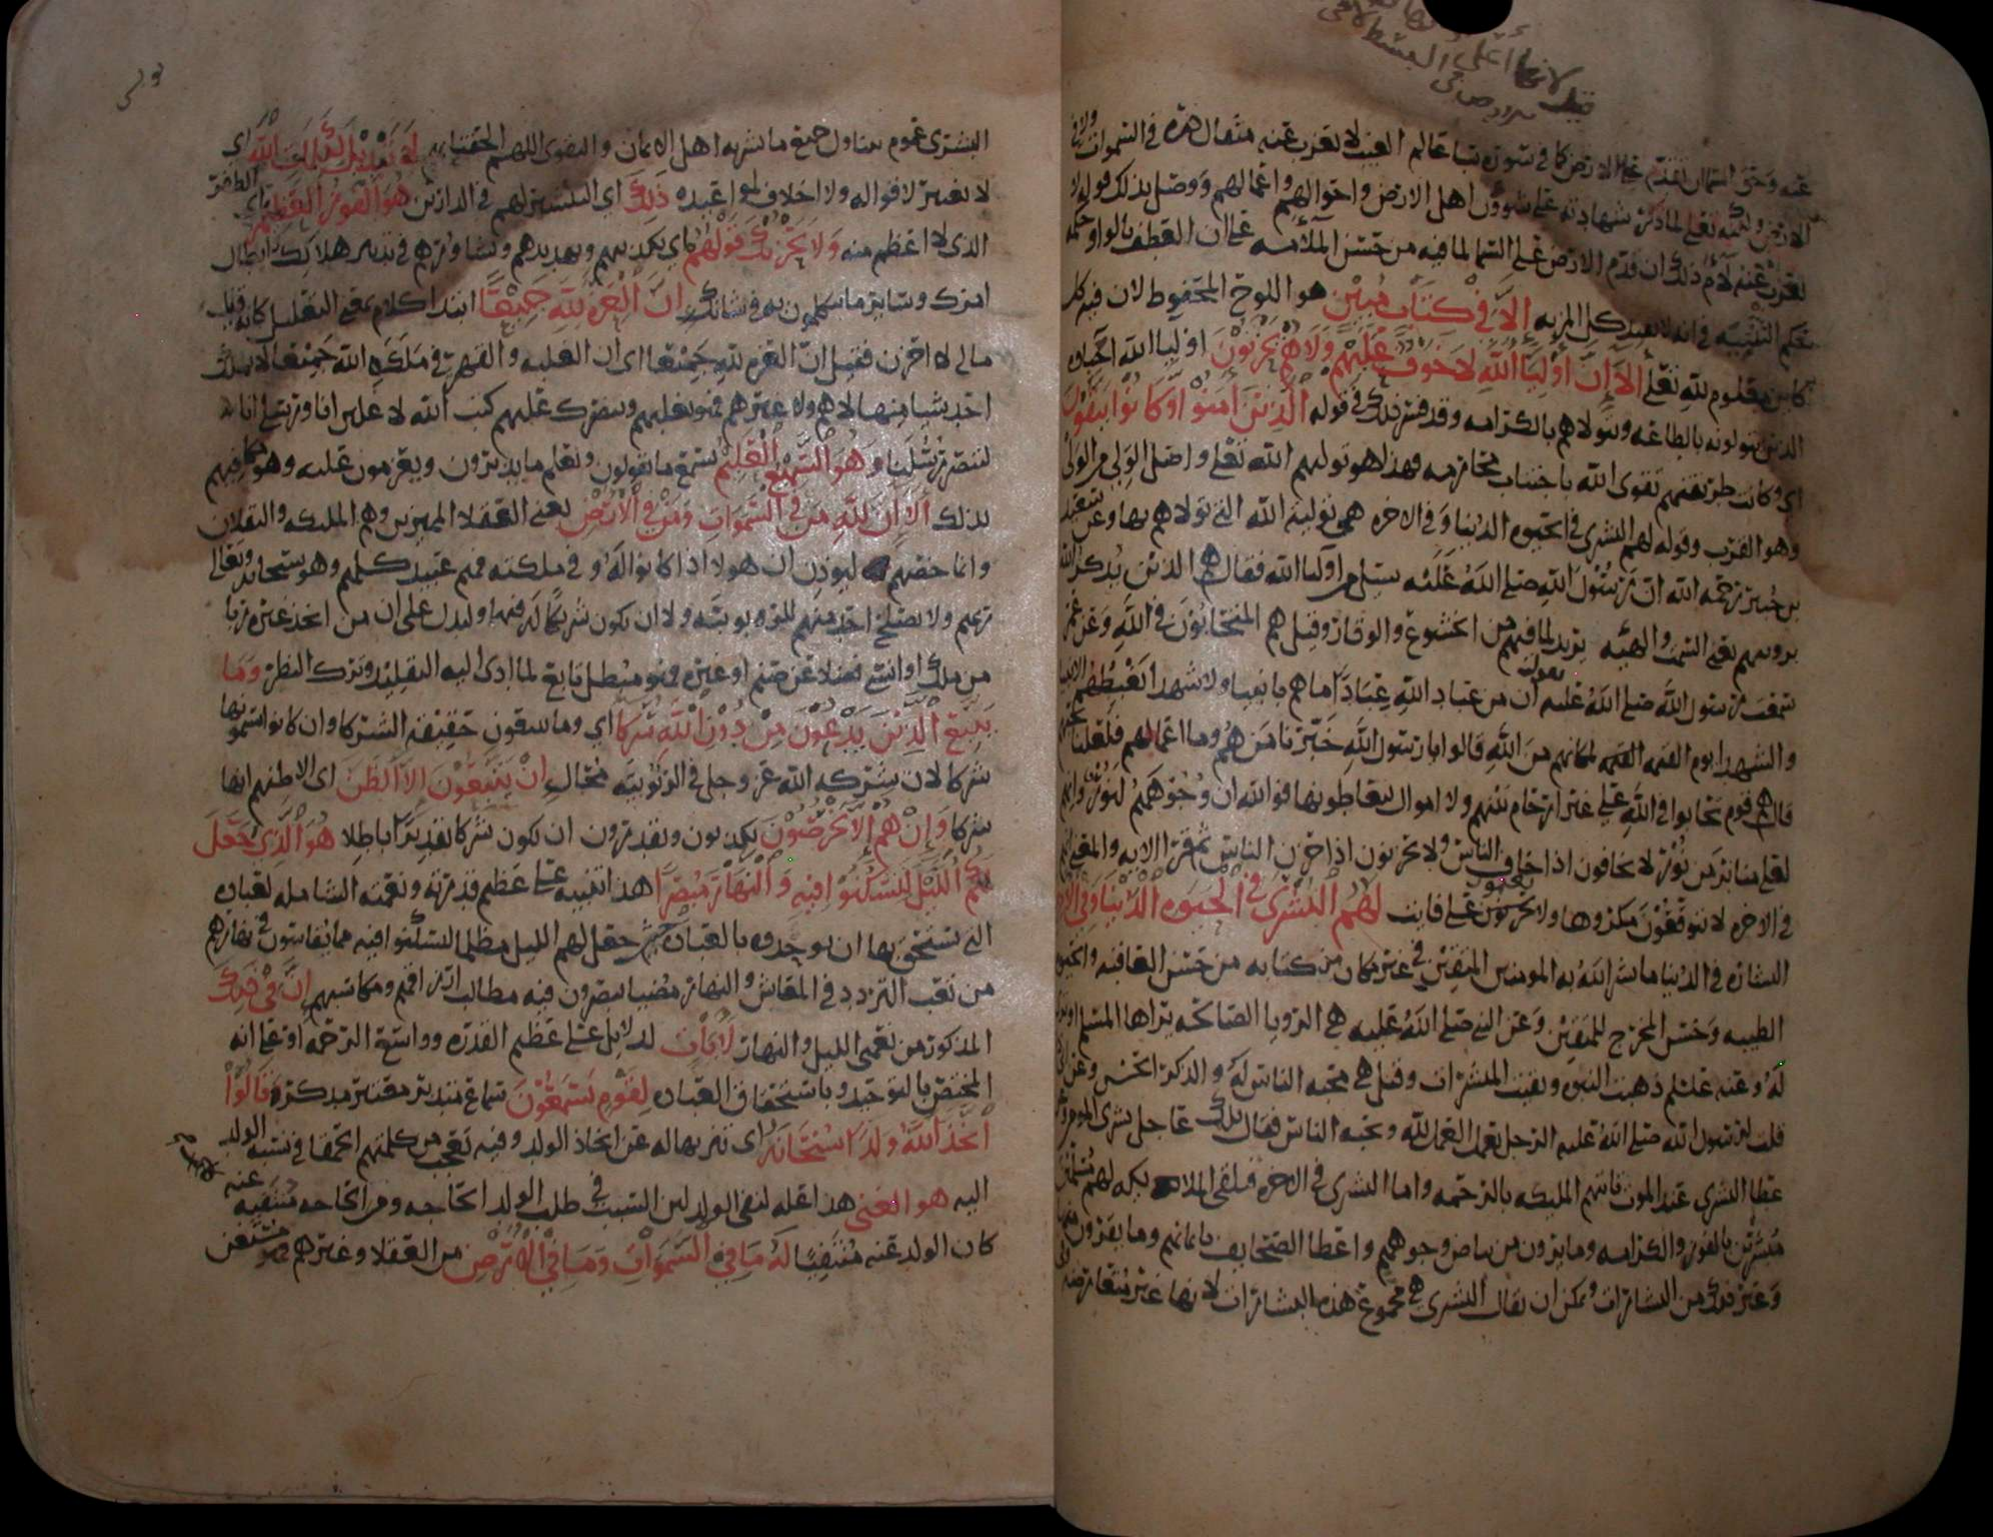 عنه وحق السماء ان تقدم على الارض كما في سورة سبا عالم الغيب لا يعزب عنه مثقال ذرة في السموات ولا في
الارض ولكنه تعلى لما ذكر شهادته على شؤون اهل الارض واحوالهم واعمالهم ووصل بذلك قوله لا
يعزب عنه لام ذلك ان قدم الارض على السما لما فيه من حسن الملآمه على ان العطف بالواو حكمه
حكم التثنيه في انه لا يفيد كل المزيه إلا في كتاب مبين هو اللوح المحفوظ لان فيه كل
كاين معلوم لله تعلى ألا إن أوليآ الله لا خوف عليهم ولا هم يحزنون اوليا الله احباه
الذين يتولونه بالطاعه ويتولاهم بالكرامه وقد فسر ذلك في قوله الذين آمنوا وكانوا يتقون
اي وكانت طريقتهم تقوى الله باجتناب محارمه فهذا هو توليهم الله تعلى واصل الولي من الولي
وهو القرب وقوله لهم البشرى في الحيوه الدنيا وفي الاخره هي توليه الله التي تولاهم بها وعن سعيد
بن جبير رحمه الله ان رسول الله صلى الله عليه سئل من اوليآ الله فقال هم الذين يذكر الله
برويتهم يعني السمت والهيئه يريد لما فيهم من الخشوع والوقار وقيل هم المتحابون في الله وعن عمر
سمعت رسول الله صلى الله عليه يقول ان من عباد الله عبادا ما هم بانبيا ولا شهدا يغبطهم الانبيا
والشهدا يوم القيمه لمكانهم من الله قالوا يا رسول الله خبرنا من هم وما اعمالهم فلعلنا نحبهم
قال هم قوم تحابوا في الله على غير ارحام بينهم ولا اموال يتعاطونها فوالله ان وجوههم لنور وانهم
لعلى منابر من نور لا يخافون اذا خاف الناس ولا يحزنون اذا حزن الناس ثم قرا الايه والمعنى
في الاخره لا يتوقعون مكروها ولا يحزنون على فايت لهم البشرى في الحيوه الدنيا وفي الاخره
البشاره في الدنيا ما بشر الله به المومنين المتقين في غير مكان من كتابه من حسن العاقبه والحيوه
الطيبه وحسن المخرج للمتقين وعن النبي صلى الله عليه هي الرويا الصالحه يراها المسلم او ترى
له وعنه عليلم ذهبت النبوه وبقيت المبشرات وقيل هي محبه الناس له والذكر الحسن وعن
قلت لرسول الله صلى الله عليه الرجل يعمل العمل لله ويحبه الناس فقال تلك عاجل بشرى المومن
عطا البشرى عند الموت تاتيهم المليكه بالرحمه واما البشرى في الاخره فتلقي الملايكه لهم مسلمين
مبشرين بالفوز والكرامه وما يرون من بياض وجوههم واعطا الصحايف بايمانهم وما يقرون منها
وغير ذلك من البشارات ويمكن ان يقال البشرى هي مجموع هذه البشارات لانها غير متعارضه
البشرى عموم يتناول جميع ما بشر به اهل الايمان والتقوى اللهم الحقنا بهم لا تبديل لكلمات الله اي
لا تغيير لاقواله ولا اخلاف لمواعيده ذلك اي التبشير لهم في الدارين هو الفوز العظيم اي الظفر
الذي لا اعظم منه ولا يحزنك قولهم اي تكذيبهم وتهديدهم وتشاورهم في تدبير هلاكك وابطال
امرك وساير ما يتكلمون به في شانك إن العزة لله جميعا ابتدا كلام بمعنى التعليل كانه قيل
مالي لا احزن فقيل ان العزه لله جميعا اي ان الغلبه والقهر في ملكه الله جميعا لا يملك
احد شيا منها لا هم ولا غيرهم فهو يغلبهم وينصرك عليهم كتب الله لا غلبن انا ورسلي انا
لننصر رسلنا وهو السميع العليم يسمع ما يقولون ويعلم ما يدبرون ويعزمون عليه وهو مكافيهم
بذلك ألا إن لله من في السموات ومن في الأرض يعني العقلا المميزين وهم المليكه والثقلان
وانما خصهم ليوذن ان هولا اذا كانوا له وفي ملكته فهم عبيد كلهم وهو سبحانه وتعالى
ربهم ولا يصلح احد منهم للربوبيه ولا ان يكون شريكا له فيها وليدل على ان من اتخذ غيره ربا
من ملك او انسي فضلا عن صنم او غيره فهو مبطل تابع لما ادى اليه التقليد وترك النظر وما
يتبع الذين يدعون من دون الله شركا اي وما يتبعون حقيقة الشركا وان كانوا يسمونها
شركا لان شركه الله عز وجل في الربوبيه محال إن يتبعون إلا الظن اي الا ظنهم انها
شركا وإن هم إلا يخرصون يكذبون ويقدرون ان تكون شركا تقديرا باطلا هو الذي جعل
لكم الليل لتسكنوا فيه والنهار مبصرا هذا تنبيه على عظيم قدرته ونعمته الشامله لعباده
التي يستحق بها ان يوحدوه بالعباده حيث جعل لهم الليل مظلما ليسكنوا فيه مما يقاسون في نهارهم
من تعب التردد في المعاش والنهار مضيا يبصرون فيه مطالب ارزاقهم ومكاسبهم إن في ذلك
المذكور من نعمتي الليل والنهار لآيات لدلايل على عظيم القدره وواسعة الرحمه او على انه
المختص بالتوحيد وباستحقاق العباده لقوم يسمعون سماع متدبر معتبر مدكر قالوا
اتخذ الله ولدا سبحانه اي تنزيها له عن اتخاذ الولد وفيه تعجب من كلمتهم الحمقا في نسبه الولد
اليه هو الغني هذا علة لنفي الولد لان السبب في طلب الولد الحاجه ومن الحاجه منتفيه عنه
كان الولد عنه منتفيا له ما في السموات وما في الأرض من العقلا وغيرهم فهو مستغن